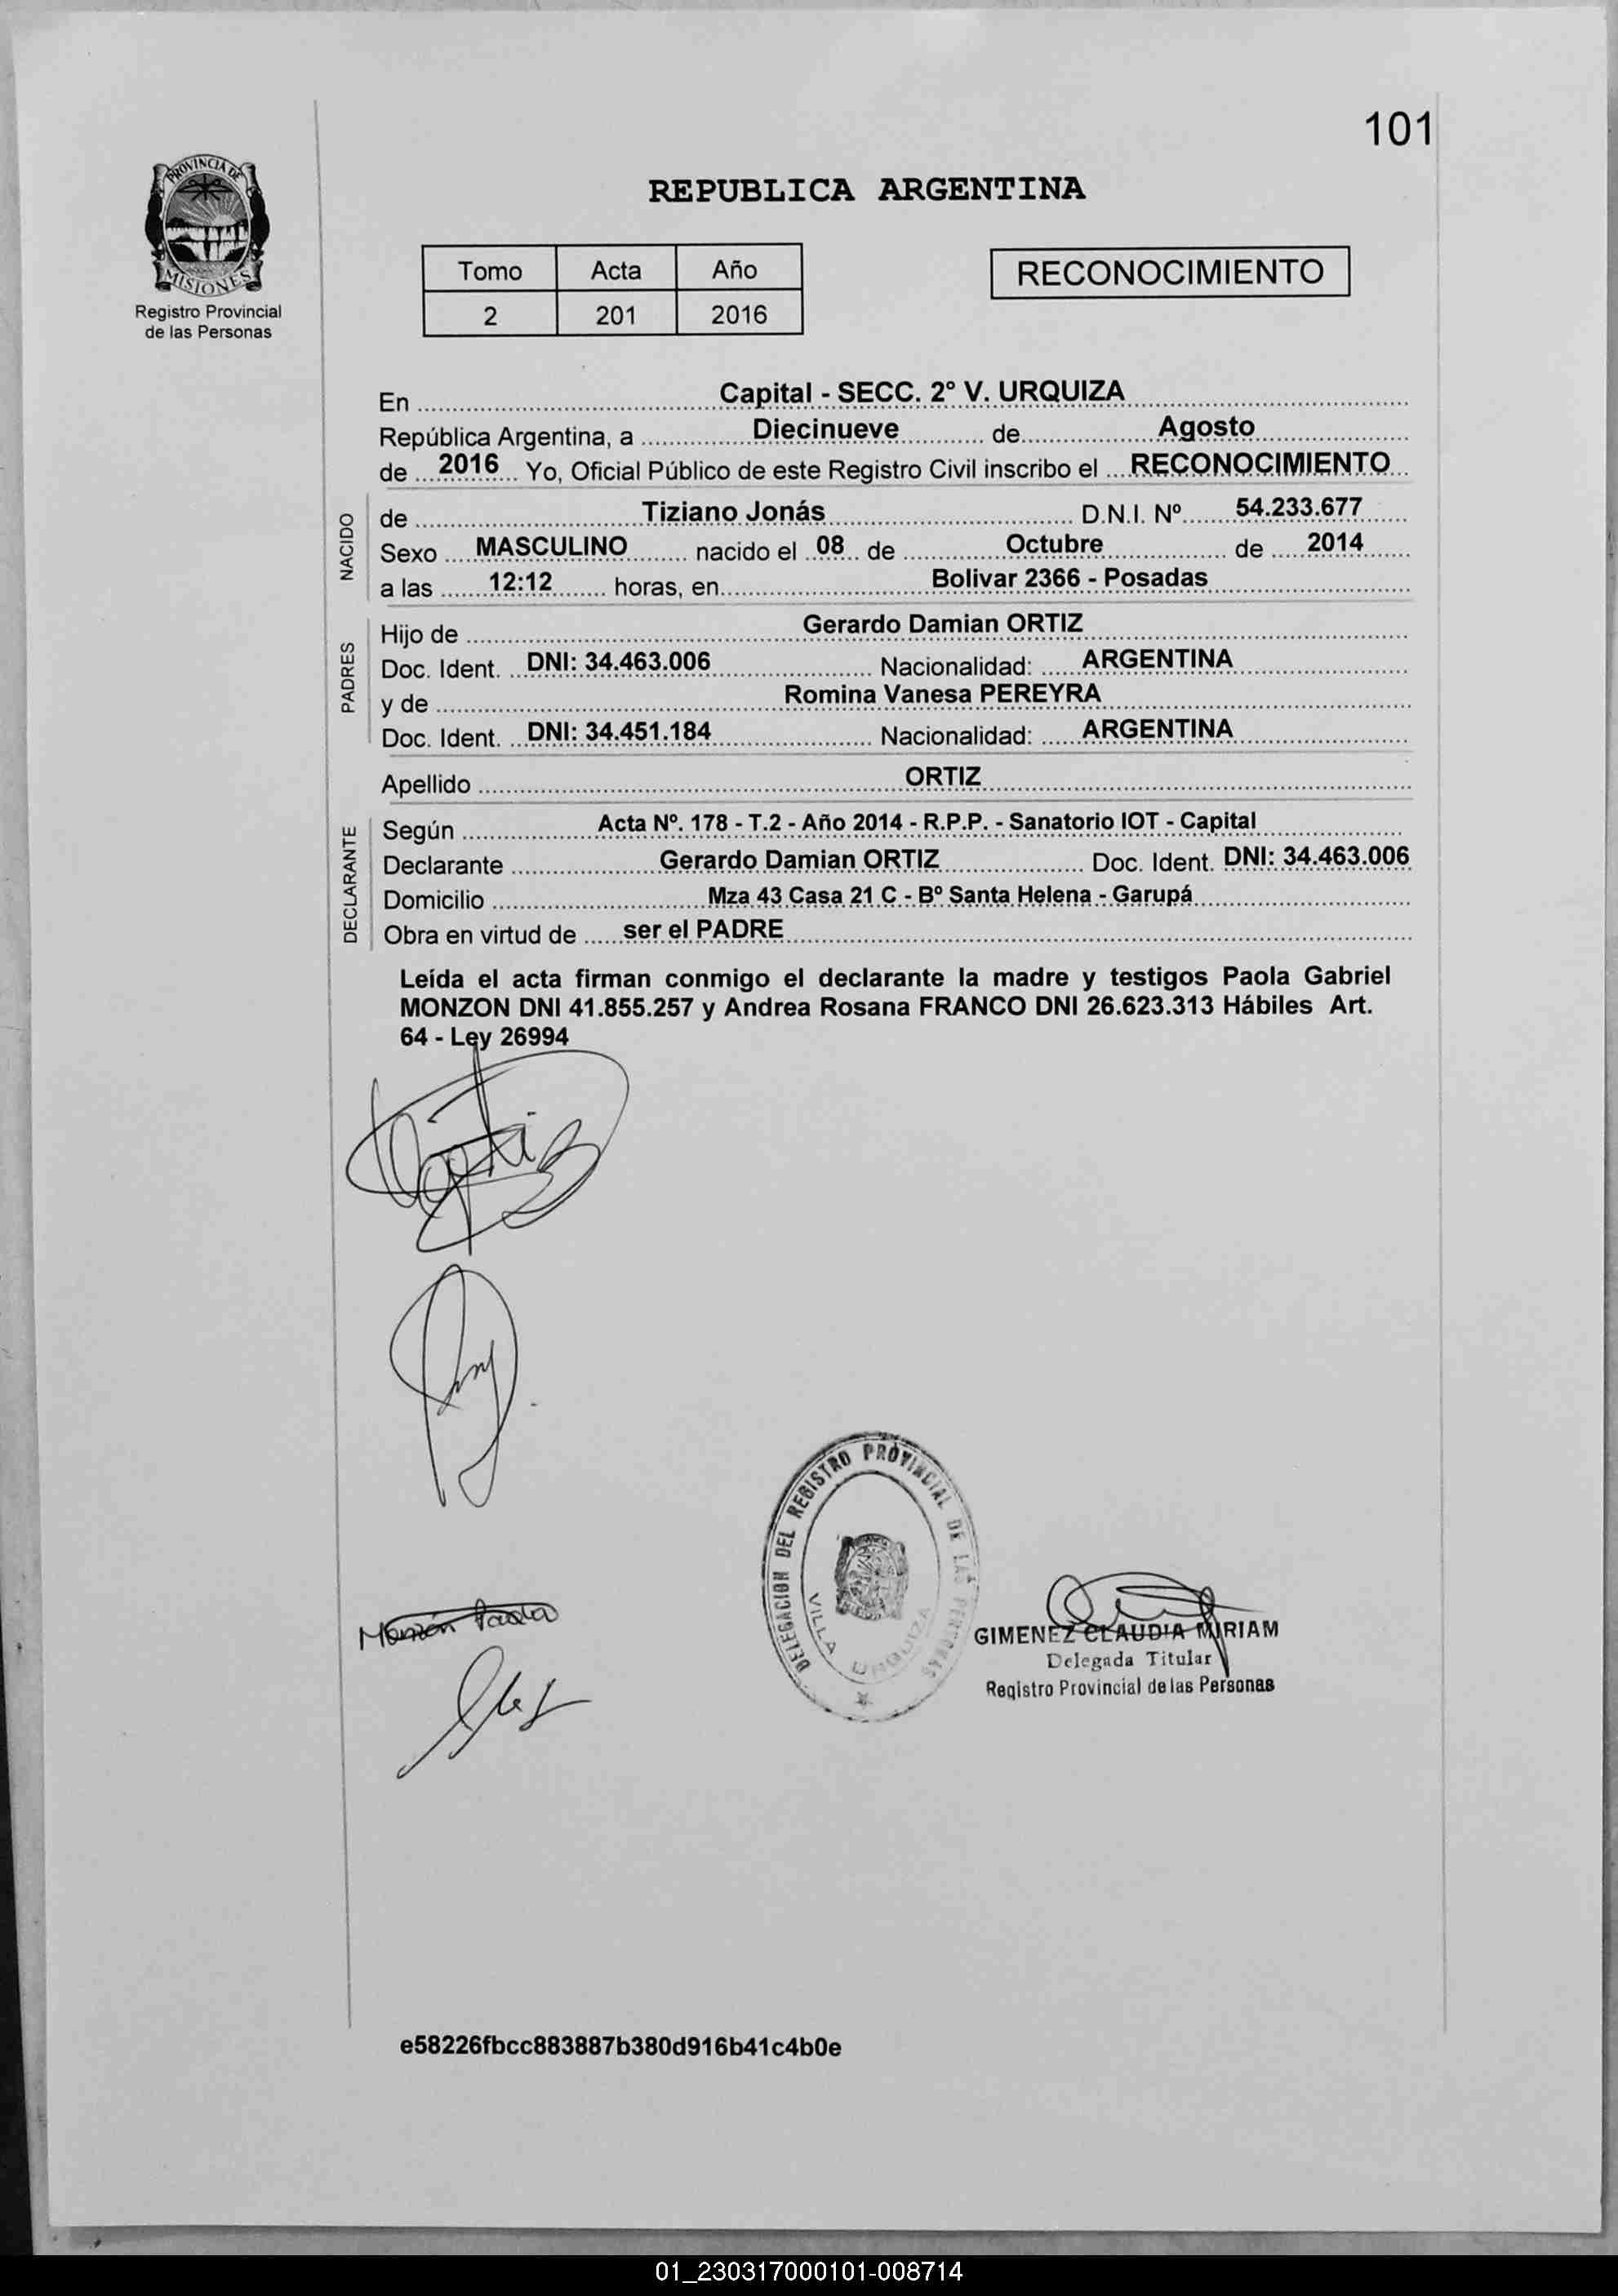 101
PROVINCIA DE
MISIONES
Registro Provincial
de las Personas
REPUBLICA ARGENTINA
Tomo Acta Año
2 201 2016
RECONOCIMIENTO
En Capital - SECC. 2º V. URQUIZA
República Argentina, a Diecinueve de Agosto
de 2016 Yo, Oficial Público de este Registro Civil inscribo el RECONOCIMIENTO
NACIDO
de Tiziano Jonás D.N.I. Nº 54.233.677
Sexo MASCULINO nacido el 08 de Octubre de 2014
a las 12:12 horas, en Bolivar 2366 - Posadas
PADRES
Hijo de Gerardo Damian ORTIZ
Doc. Ident. DNI: 34.463.006 Nacionalidad: ARGENTINA
y de Romina Vanesa PEREYRA
Doc. Ident. DNI: 34.451.184 Nacionalidad: ARGENTINA
Apellido ORTIZ
DECLARANTE
Según Acta Nº. 178 - T.2 - Año 2014 - R.P.P. - Sanatorio IOT - Capital
Declarante Gerardo Damian ORTIZ Doc. Ident. DNI: 34.463.006
Domicilio Mza 43 Casa 21 C - Bº Santa Helena - Garupá
Obra en virtud de ser el PADRE
Leída el acta firman conmigo el declarante la madre y testigos Paola Gabriel
MONZON DNI 41.855.257 y Andrea Rosana FRANCO DNI 26.623.313 Hábiles Art.
64 - Ley 26994
Monzón Paola
DELEGACION DEL REGISTRO PROVINCIAL DE LAS PERSONAS
VILLA URQUIZA
GIMENEZ CLAUDIA MIRIAM
Delegada Titular
Registro Provincial de las Personas
e58226fbcc883887b380d916b41c4b0e
01_230317000101-008714